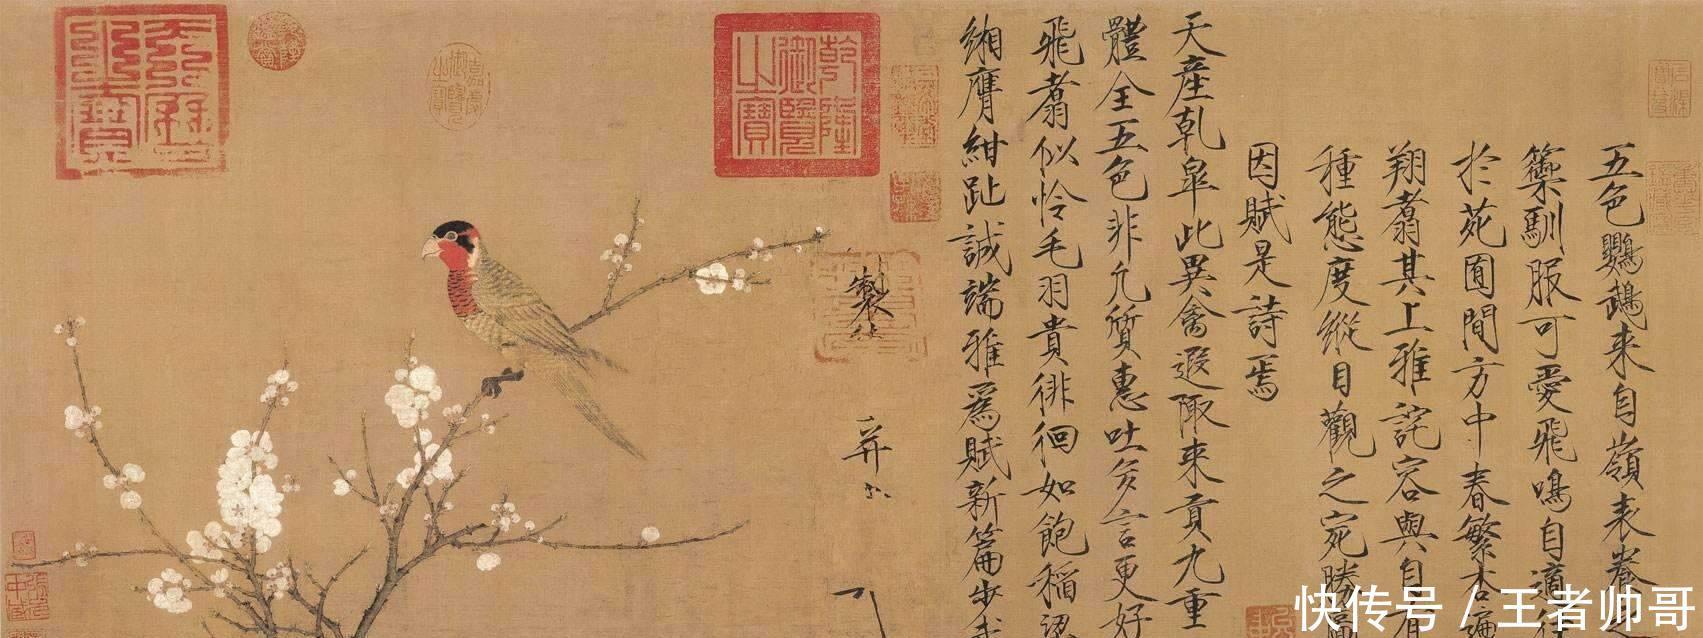 五色鸚鵡来自嶺表養
籞馴服可愛飛鳴自適往
於苑囿間方中春繁杏遍
翔翥其上雅詫容與自有
種態度縱目觀之宛勝圖
因賦是詩焉
天産乹臯此異禽遐陬来貢九重
體全五色非凡質惠吐多言更好
飛翥似憐毛羽貴徘徊如飽稻
緗膺紺趾誠端雅爲賦新篇步
製
并
乾隆御覽之寶
嘉慶御覽之寶
快传号 / 王者帅哥